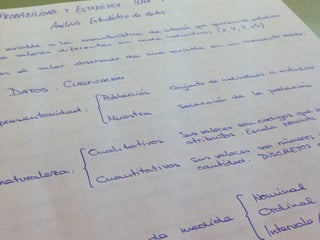 PROBABILIDAD Y ESTADÍSTICA TEMA
Análisis Estadístico de datos.
variable a la característica de interés que queremos estudiar
valores diferentes en cada individuo, (X, Y, Z, ...)
es el valor observado de una variable en un momento dado.
DATOS. CLASIFICACIÓN
Población Conjunto de individuos a estudiar
Muestra Selección de la población
naturaleza: Cualitativos Sus valores son códigos que
atributos. Escala Nominal
Cuantitativos Sus valores son números
cantidad. DISCRETOS
de medida Nominal
Ordinal
Intervalo